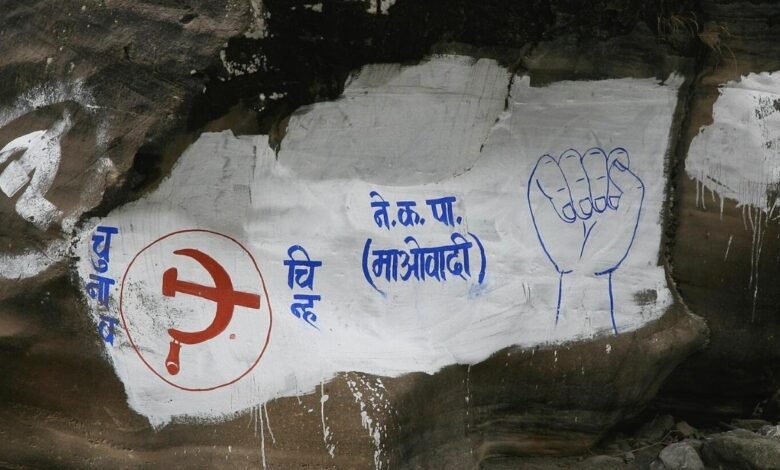 चुनाव
चिन्ह
ने.क.पा.
(माओवादी)